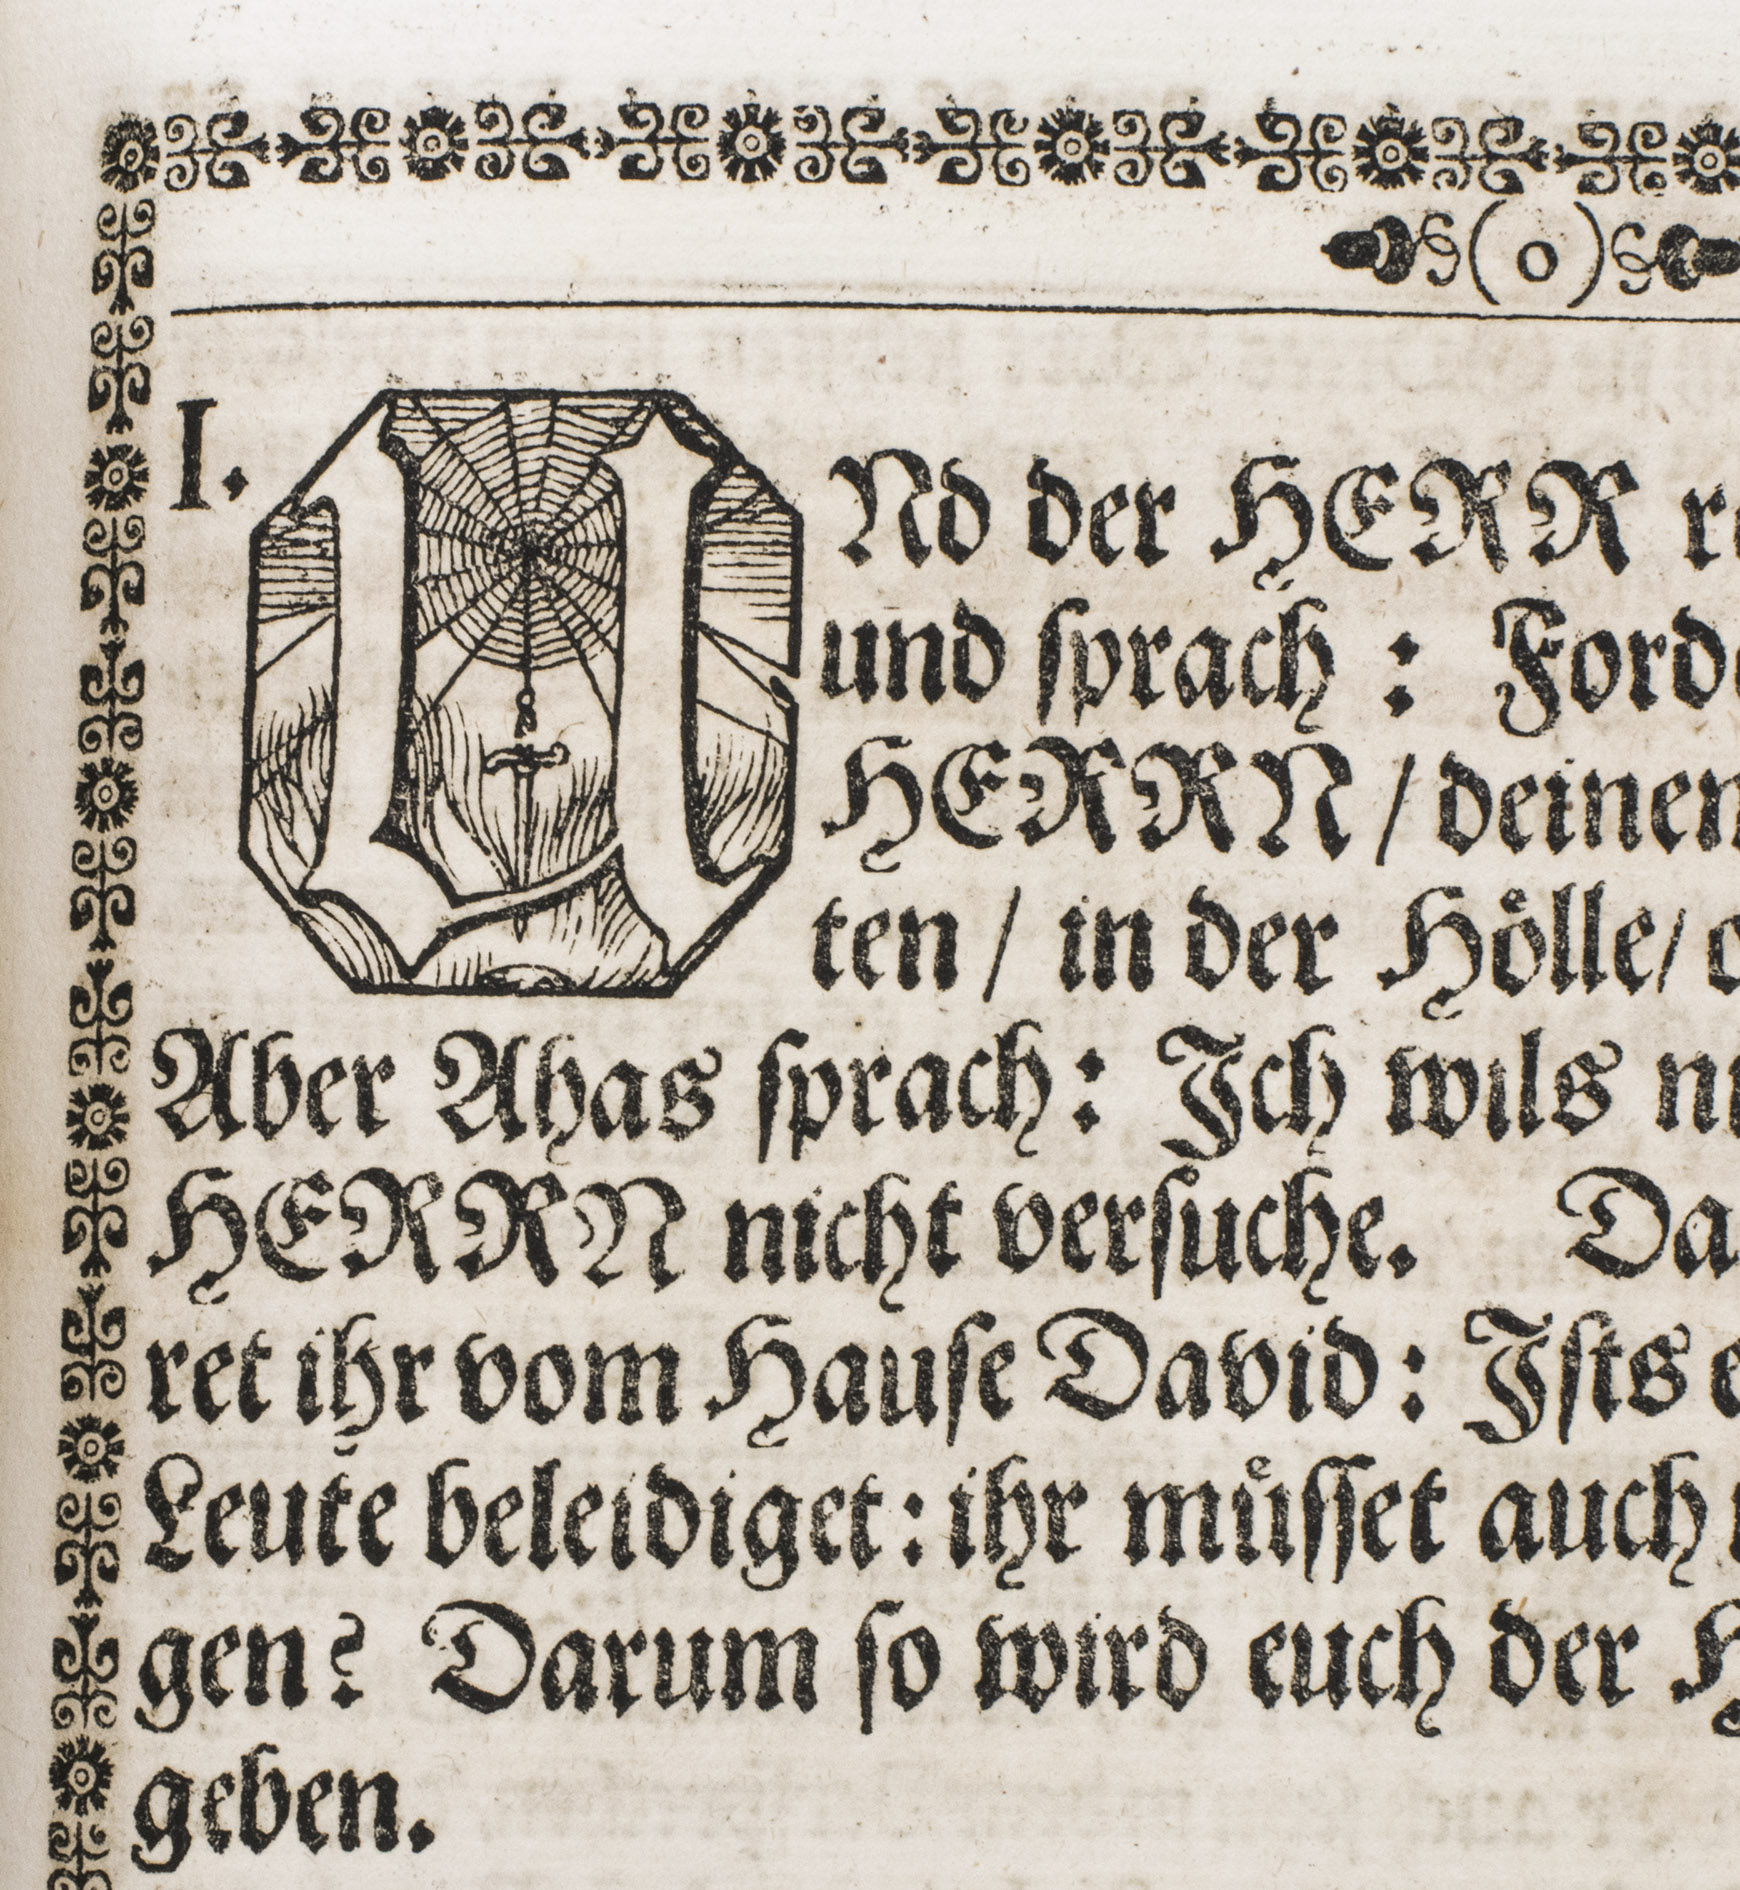 ( o )
I. UNd der HERR
und ſprach :
HERRN / deinen
ten / in der Hoͤlle /
Aber Ahas ſprach : Ich wils
HERRN nicht verſuche. Da
ret ihr vom Hauſe David : Iſts
Leute beleidiget : ihr muͤſſet auch
gen? Darum ſo wird euch der
geben.